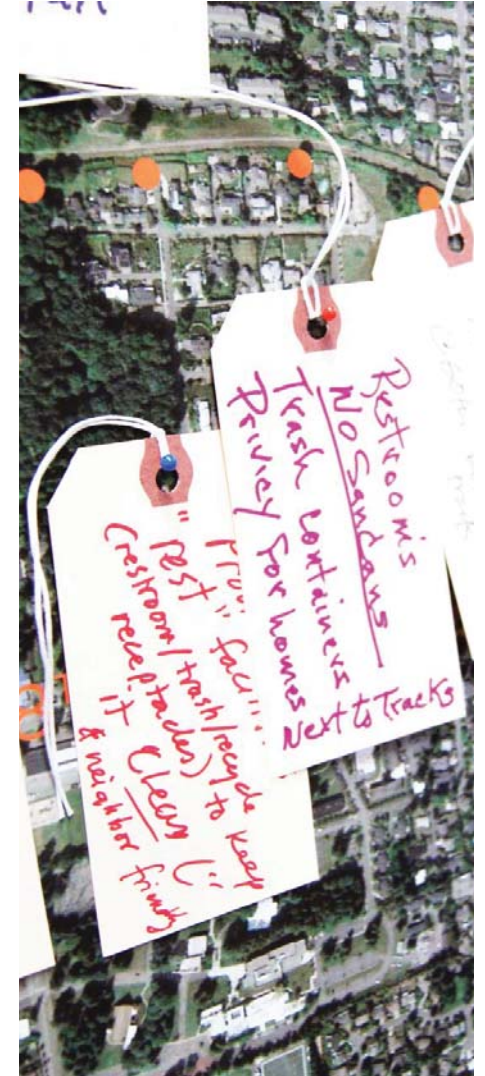 Restrooms
No Sandans
Trash containers
Privicy for homes
Next to Tracks
"rest"
(restroom/trash/recycle
receptacles) to keep
it clean (
& neighbor friendly